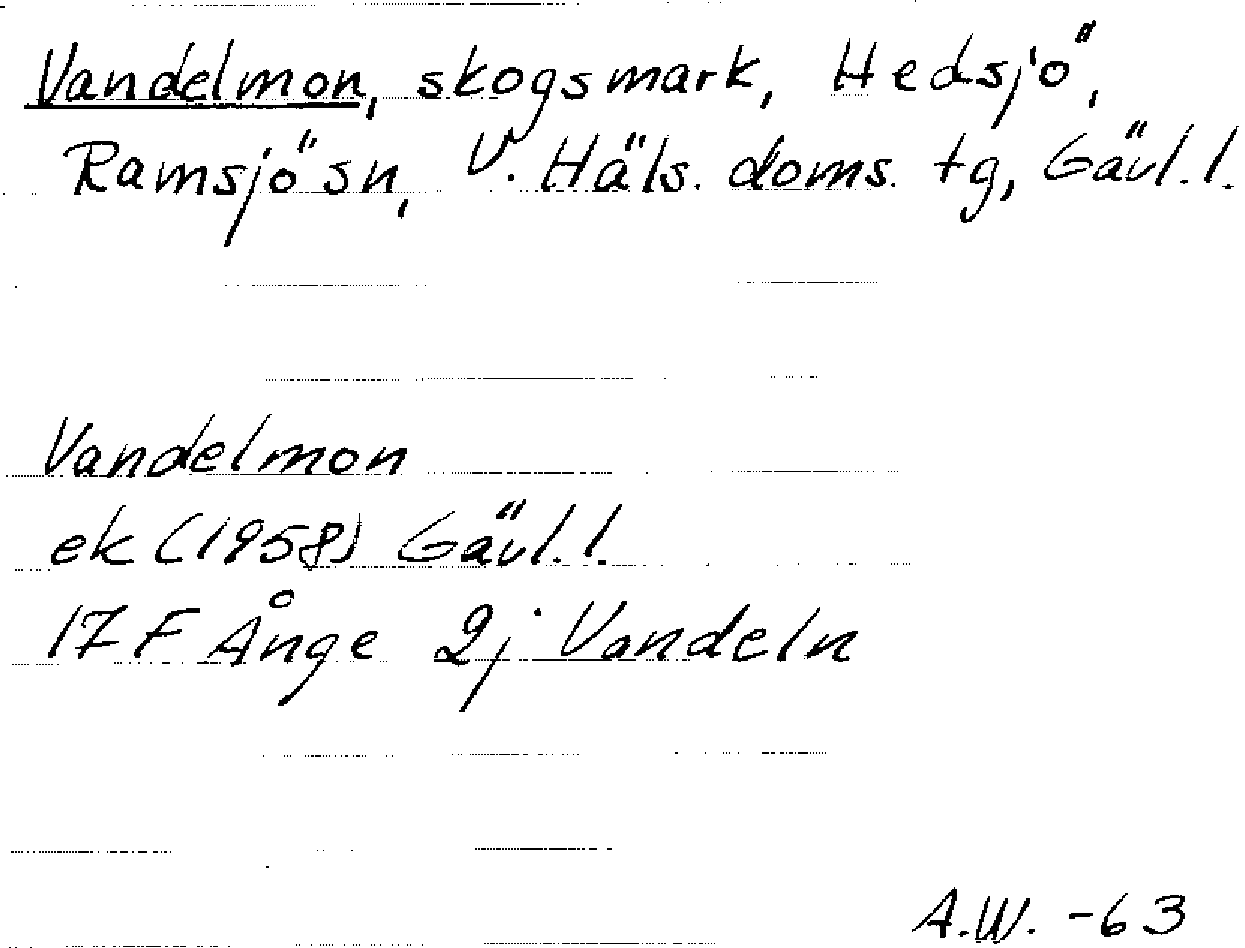 Vandelmon, skogsmark, Hedsjö,
Ramsjö sn, V. Häls. doms. tg, Gävl. l.
Vandelmon
ek (1958) Gävl. l.
17 F Ånge 2j Vandeln
A.W. -63